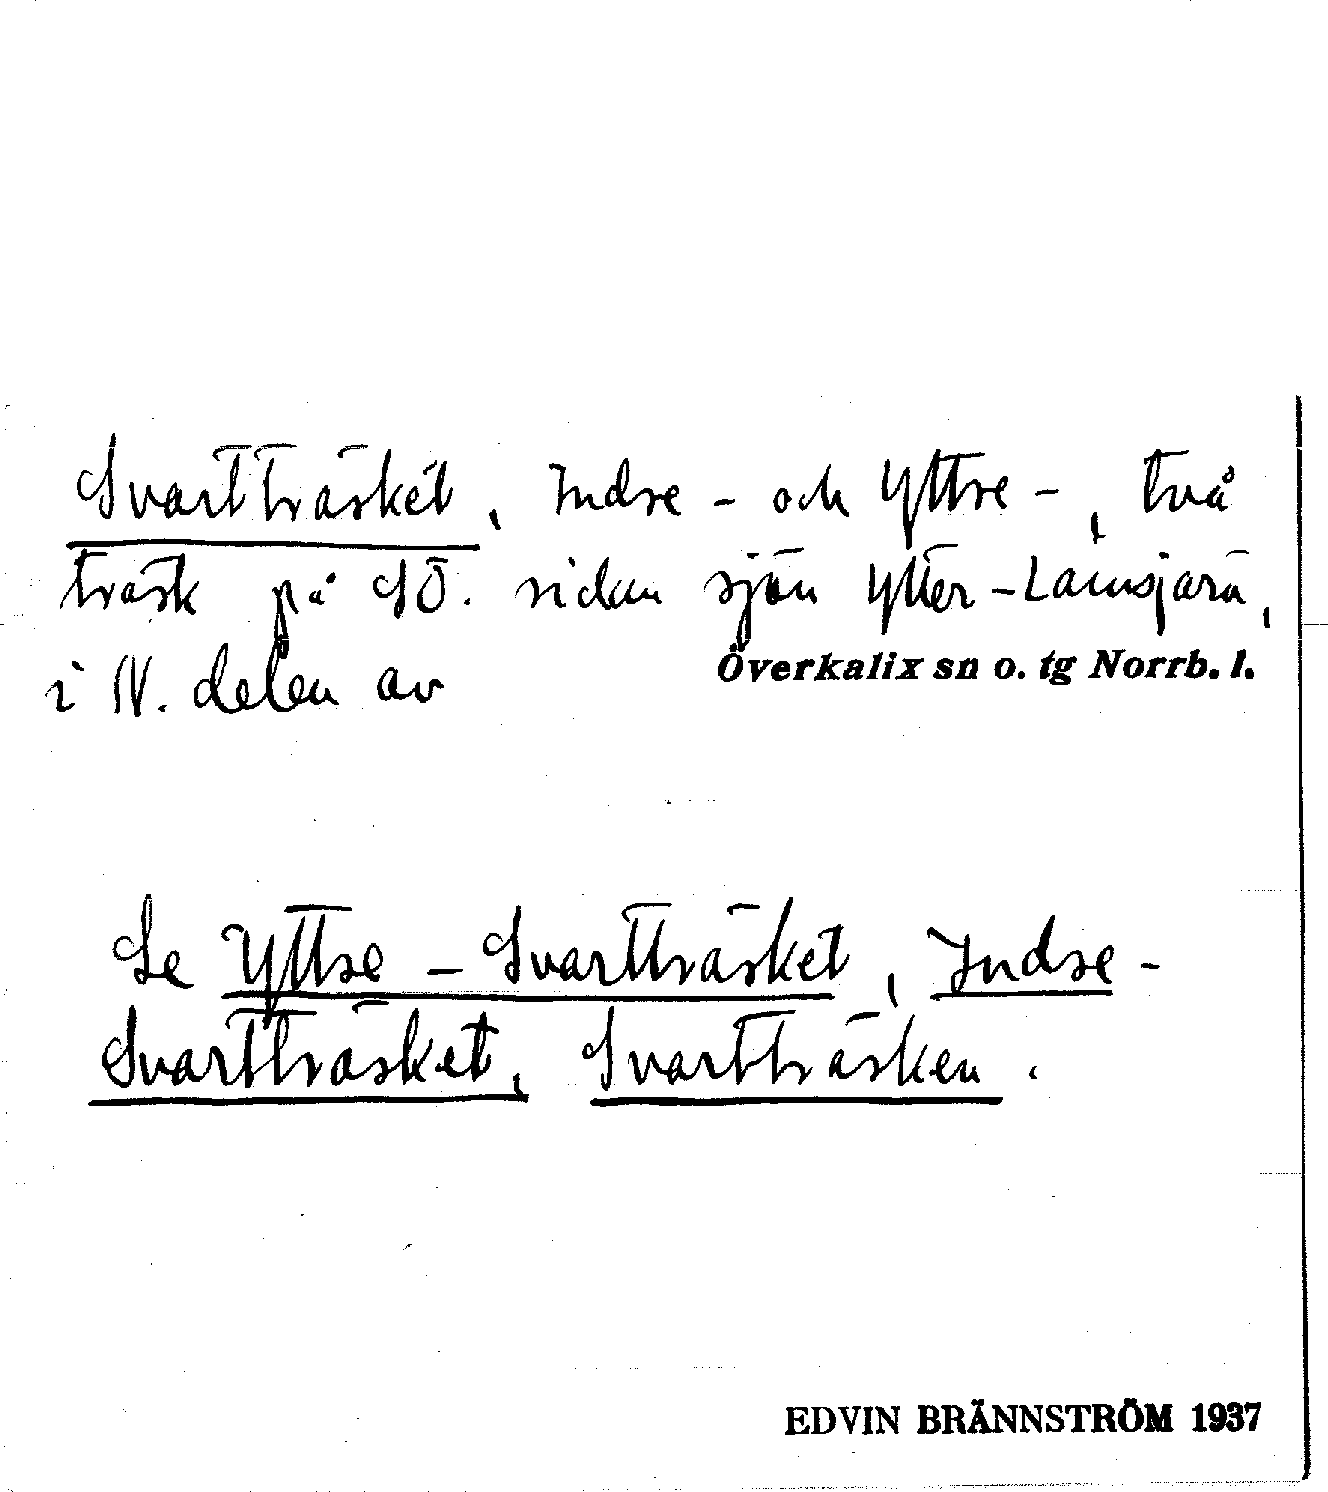 Svartträsket, Indre - och Yttre -, två
träsk på SÖ. sidan sjön Ytter-Lansjärv,
i N. delen av Överkalix sn o. tg Norrb. l.
Se Yttre - Svartträsket, Indre -
Svartträsket, Svartträsken.
EDVIN BRÄNNSTRÖM 1937